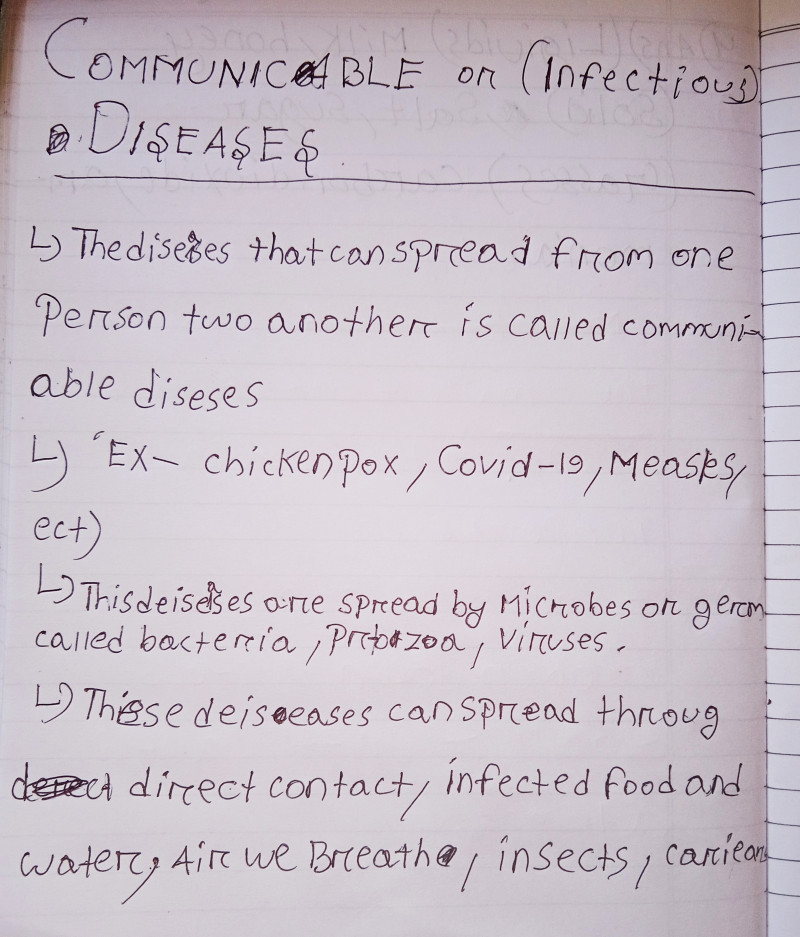 COMMUNICABLE or (Infectious)
DISEASES
↳ The diseses that can spread from one
Person two another is called communi-
able diseses
↳ EX- chicken pox, Covid-19, Measles,
ect)
↳ This deiseses are spread by Microbes or germ
called bacteria, Protozoa, Viruses.
↳ These deiseases can spread throug
direct contact, infected food and
water, Air we Breathe, insects,